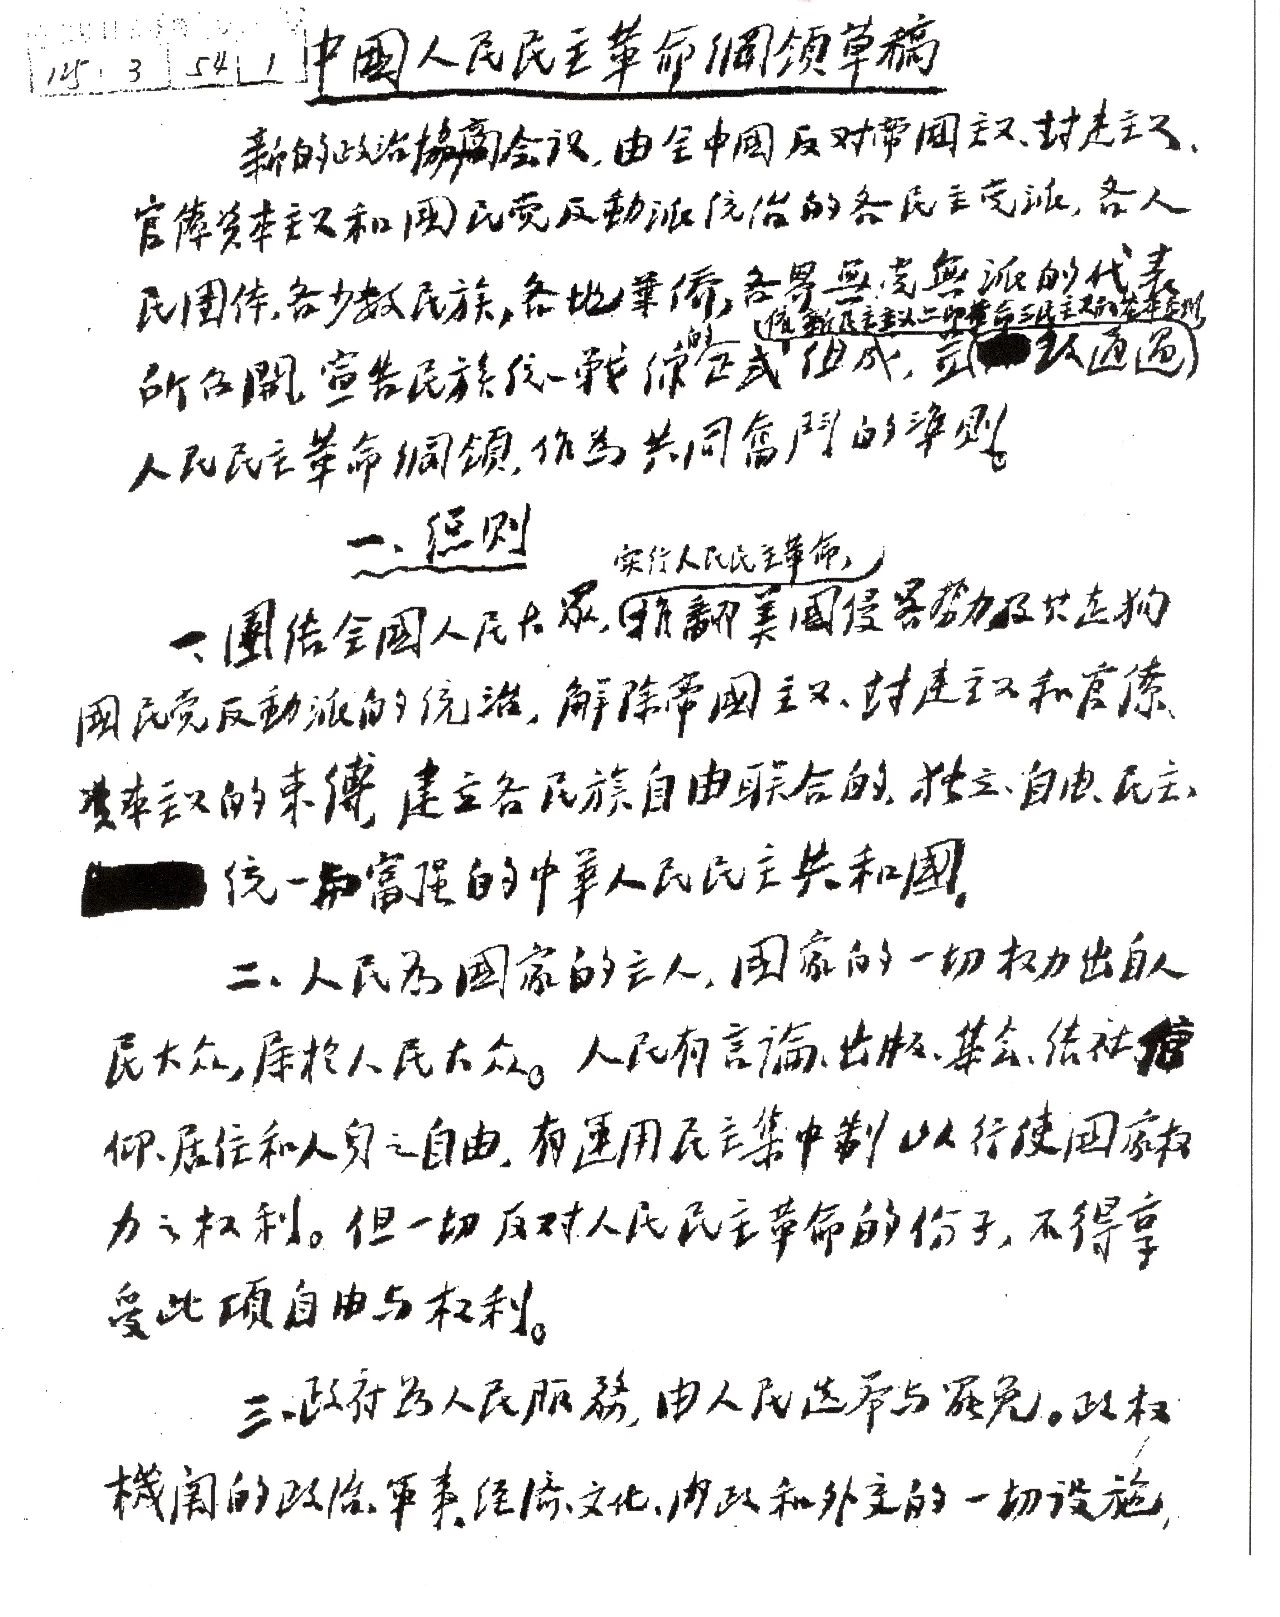 125 3 54 1
中國人民民主革命綱領草稿
新的政治協商会议,由全中國反对帝國主义、封建主义、
官僚资本主义和國民党反動派统治的各民主党派,各人
民团体,各少数民族,各地華僑,各界無党無派的代表
依新民主主义——即革命三民主义的基本原则,
所召開,宣告民族统一戰線的正式组成,并一致通过
人民民主革命綱領,作為共同奮鬥的準则。
一、总则
实行人民民主革命,
一、團结全國人民大眾,推翻美國侵畧势力及其走狗
國民党反動派的统治,解除帝國主义、封建主义和官僚
资本主义的束缚,建立各民族自由联合的、独立、自由、民主、
统一与富强的中華人民民主共和國。
二、人民為國家的主人,国家的一切权力出自人
民大众,属於人民大众。人民有言論、出版、集会、结社、信
仰、居住和人身之自由,有運用民主集中制以行使国家权
力之权利。但一切反对人民民主革命的份子,不得享
受此项自由与权利。
三、政府為人民服務,由人民选举与罷免。政权
機関的政治、軍事、经济、文化、内政和外交的一切设施,